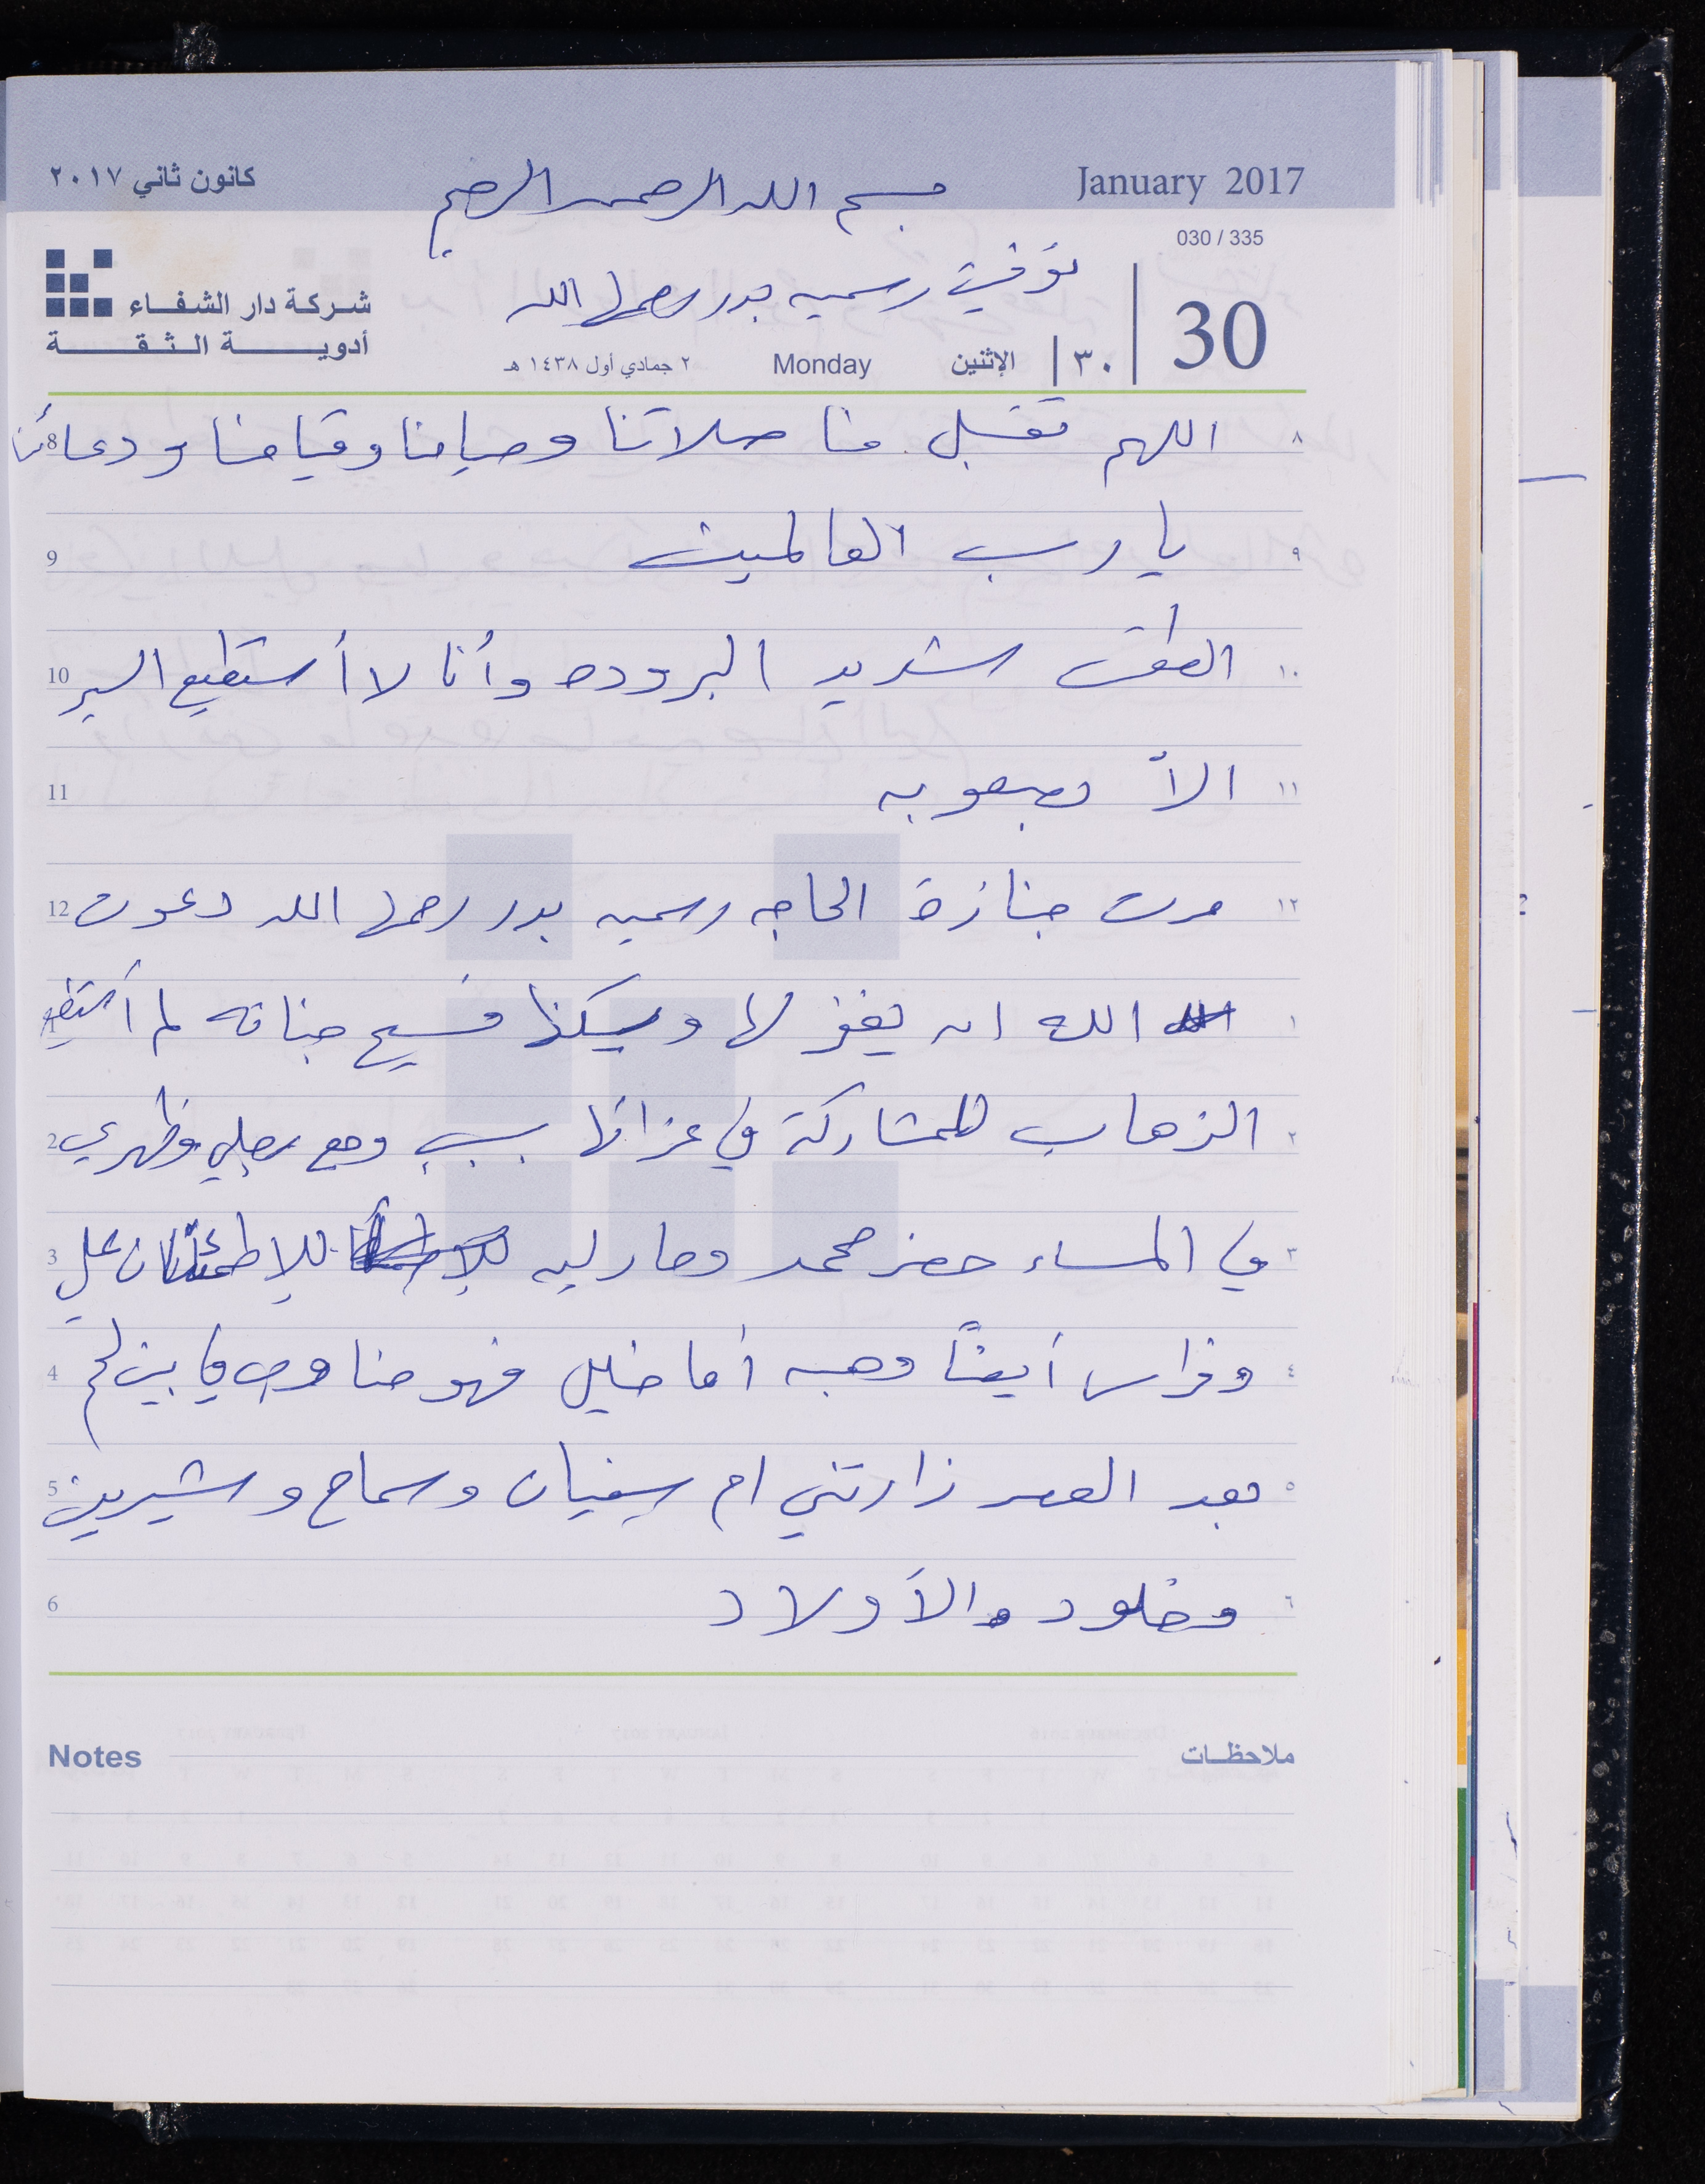 كانون ثاني ٢٠١٧ January 2017
بسم الله الرحمن الرحيم
030 / 335
توفيت رسميه بدر رحمها الله
شركة دار الشفاء
أدوية الثقة
30 ٣٠ الإثنين Monday ٢ جمادي أول ١٤٣٨ هـ
٨ اللهم تقبل منا صلاتنا وصيامنا وقيامنا ودعائنا 8
٩ يا رب العالمين 9
١٠ الطقس شديد البروده وأنا لا أستطيع السير 10
١١ الأ بصعوبه 11
١٢ مرت جنازة الحاجه رسميه بدر رحمها الله دعوت 12
١ الله ان يغفر لها ويسكنها فسيح جناته لم أستطع 1
٢ الذهاب للمشاركة في عزائها بسبب وجع رجلي وظهري 2
٣ في المساء حضر محمد للاطمئنان علي 3
٤ وفراس أيضاً وهبه أما خليل فهو مناوب في بيت لحم 4
٥ بعد العصر زارتني ام سفيان وسماح وشيرين 5
٦ وخلود والأولاد 6
Notes ملاحظات